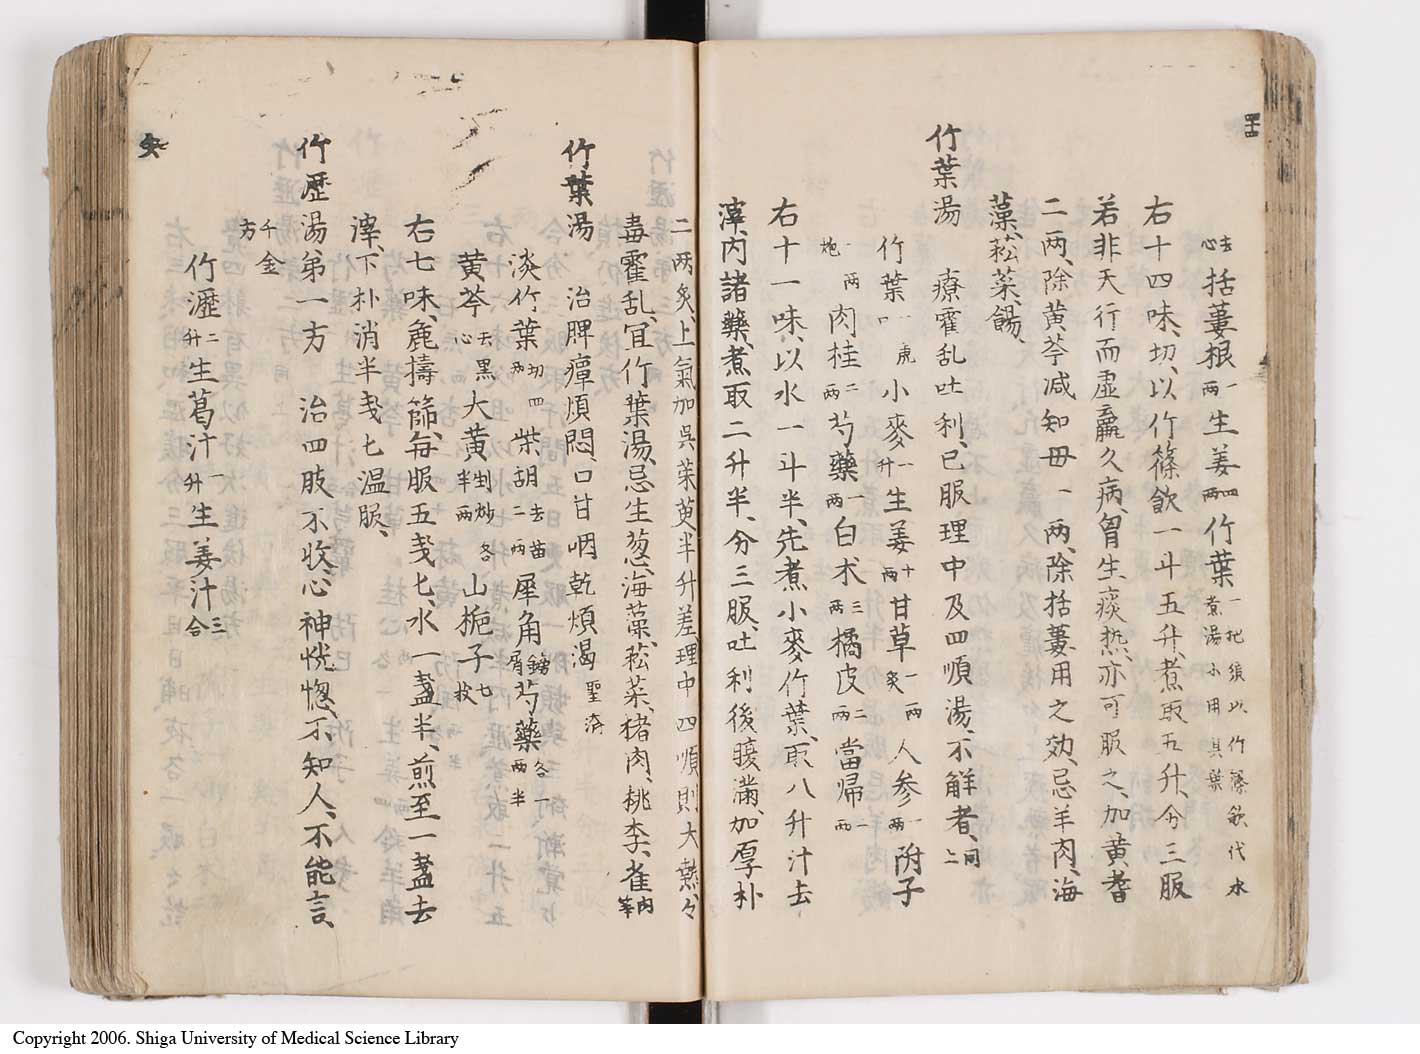 去心 括蔞根一両 生姜四両 竹葉一把須以竹篠飲代水煮湯小用其葉
右十四味、切、以竹篠飲一斗五升、煮取五升、分三服
若非天行而虚羸久病、胃生痰热、亦可服之、加黄耆
二両、除黄芩减知毋一両、除括蔞用之効、忌羊肉、海
藻菘菜餳、
竹葉湯 療霍乱吐利、已服理中及四順湯、不解者、同上
竹葉一虎口 小麥一升 生姜十両 甘草一両炙 人参一両 附子
一両炮 肉桂二両 芍藥一両 白术三両 橘皮二両 當帰一両
右十一味、以水一斗半、先煮小麥竹葉、取八升汁去
滓、内諸藥、煮取二升半、分三服、吐利後腹滿、加厚朴
二両炙、上氣加呉茱萸半升差、理中四順則大热、々
毒霍乱、宜竹葉湯、忌生葱、海藻、菘菜、猪肉、桃李、雀肉等
竹葉湯 治脾癉煩悶、口甘咽乾煩渇 聖済
淡竹葉切四両 柴胡去苗二両 犀角鎊屑 芍藥各一両半
黄芩去黑心 大黄剉炒各半両 山梔子七枚
右七味、麁擣篩、毎服五㦮匕、水一盞半、煎至一盞去
滓、下朴消半㦮匕温服、
竹瀝湯第一方 治四肢不收、心神恍惚、不知人、不能言、
千金方
竹瀝二升 生葛汁一升 生姜汁三合
Copyright 2006. Shiga University of Medical Science Library